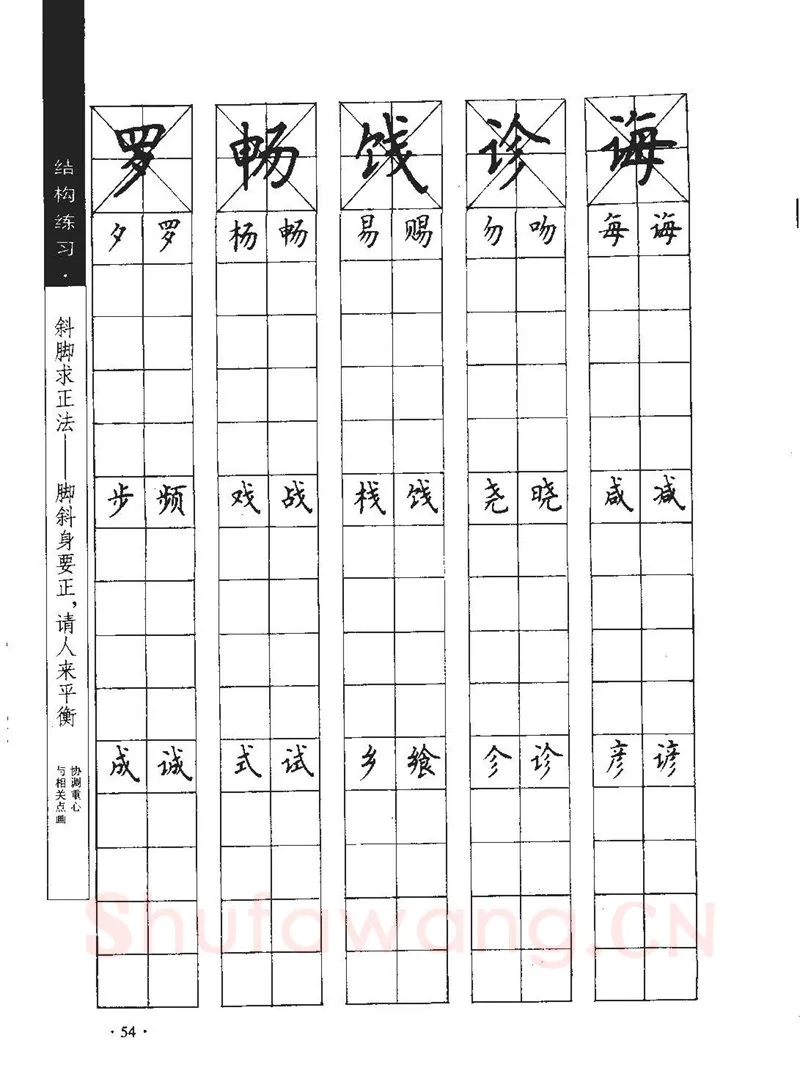 结构练习·
斜脚求正法——脚斜身要正，请人来平衡
协调重心
与相关点画
罗 畅 饯 诊 诲
夕 罗 杨 畅 易 赐 勿 吻 每 诲
步 频 戏 战 栈 饯 尧 晓 咸 减
成 诚 式 试 乡 飨 诊 彦 谚
·54·
Shufawang.CN